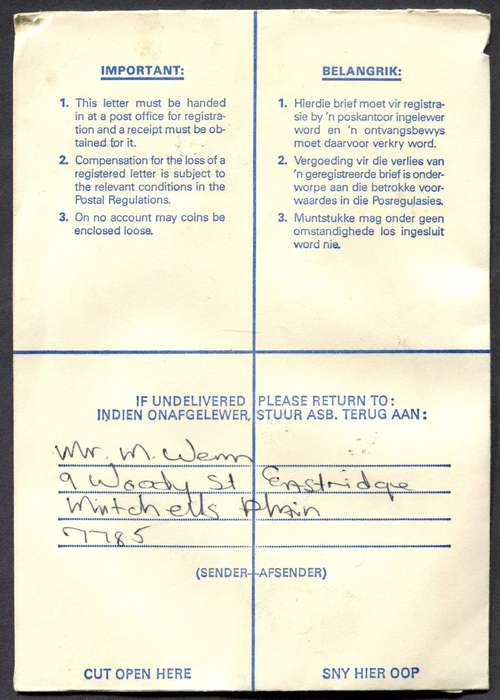 IMPORTANT:
1. This letter must be handed
in at a post office for registra-
tion and a receipt must be ob-
tained for it.
2. Compensation for the loss of a
registered letter is subject to
the relevant conditions in the
Postal Regulations.
3. On no account may coins be
enclosed loose.
BELANGRIK:
1. Hierdie brief moet vir registra-
sie by 'n poskantoor ingelewer
word en 'n ontvangsbewys
moet daarvoor verkry word.
2. Vergoeding vir die verlies van
'n geregistreerde brief is onder-
worpe aan die betrokke voor-
waardes in die Posregulasies.
3. Muntstukke mag onder geen
omstandighede los ingesluit
word nie.
IF UNDELIVERED PLEASE RETURN TO:
INDIEN ONAFGELEWER, STUUR ASB. TERUG AAN:
Mr. M. Wenn
9 Woody St Eastridge
Mitchells Plain
7785
(SENDER–AFSENDER)
CUT OPEN HERE
SNY HIER OOP